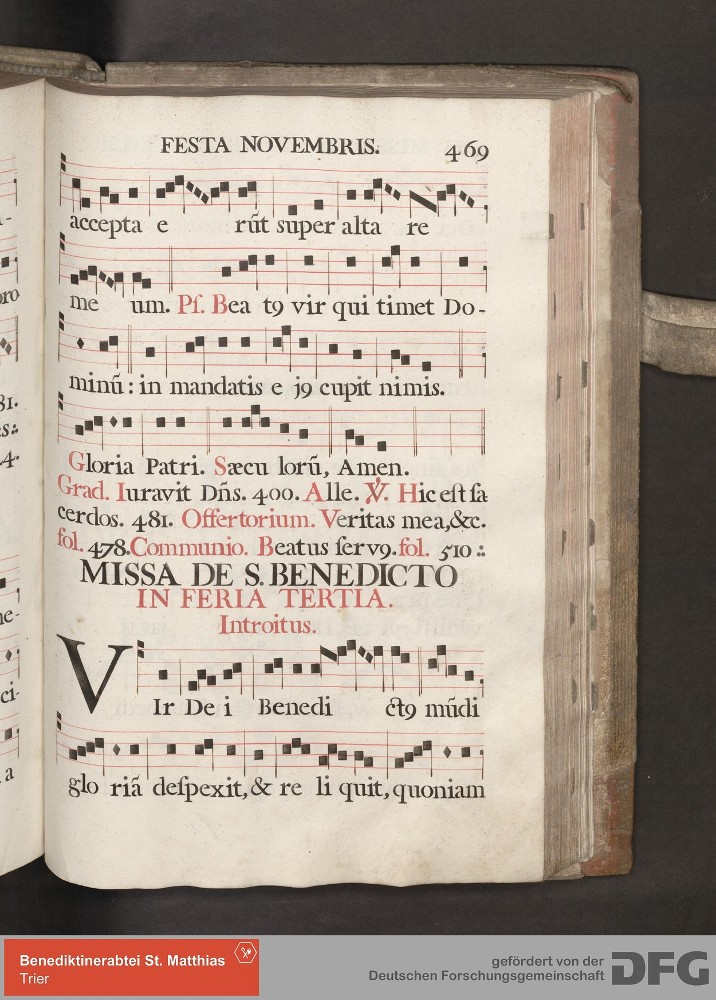 FESTA NOVEMBRIS. 469
accepta e rũt super alta re
me um. Ps. Bea t9 vir qui timet Do-
minũ: in mandatis e j9 cupit nimis.
Gloria Patri. Sæcu lorũ, Amen.
Grad. Iuravit Dñs. 400. Alle. ℣. Hic est sa
cerdos. 481. Offertorium. Veritas mea, &c.
fol. 478. Communio. Beatus serv9. fol. 510 :.
MISSA DE S. BENEDICTO
IN FERIA TERTIA.
Introitus.
VIr De i Benedi ct9 mũdi
glo riã despexit, & re li quit, quoniam
Benediktinerabtei St. Matthias
Trier
gefördert von der
Deutschen Forschungsgemeinschaft
DFG